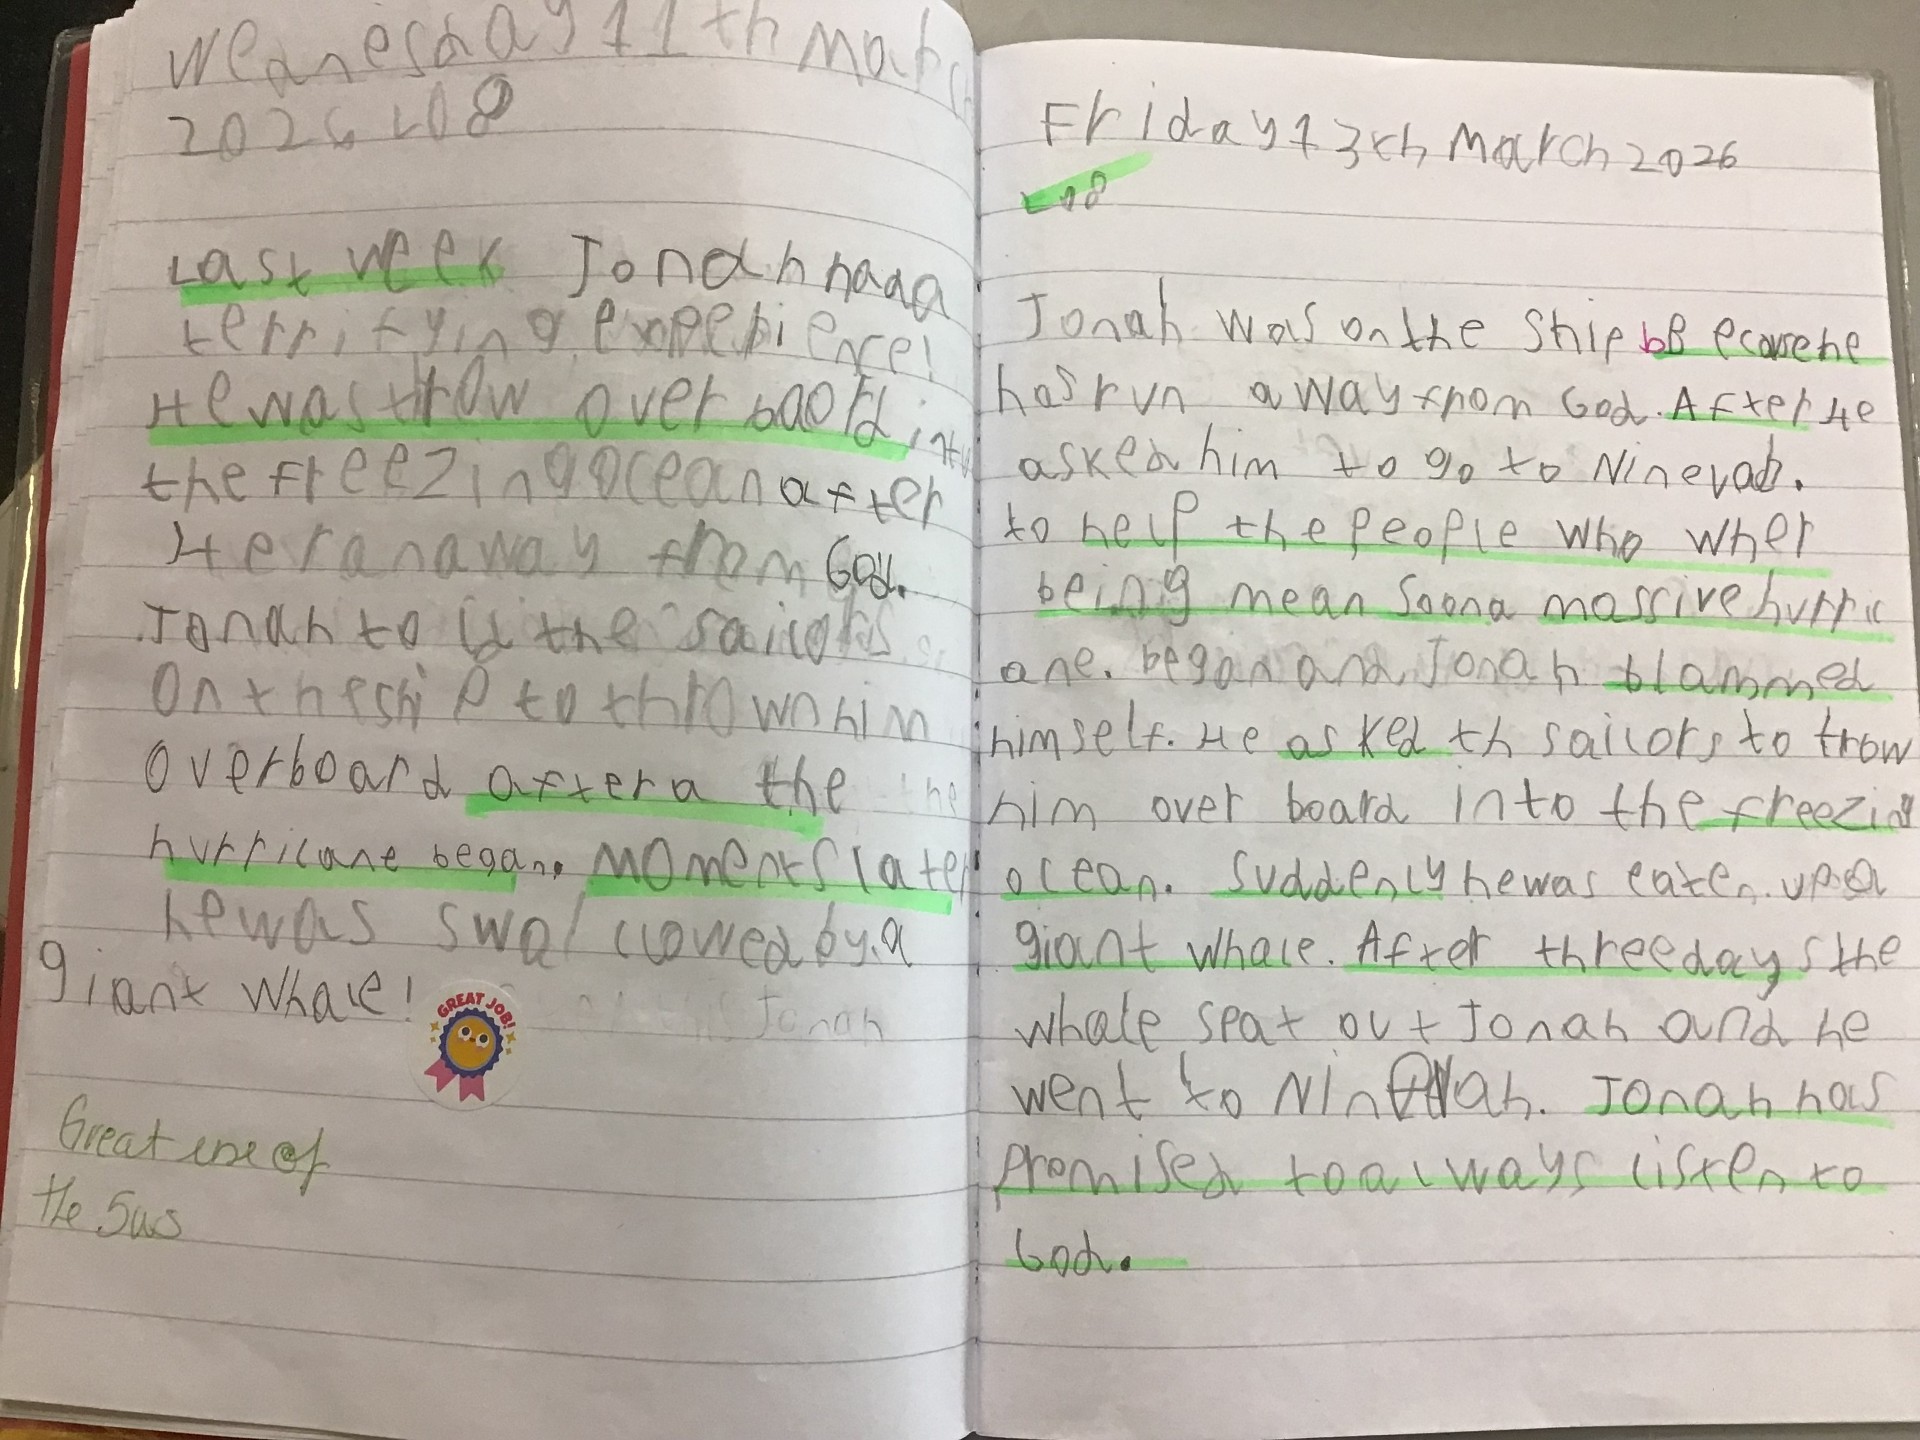 Wednesday 11th March
2026 LO8
Last week Jonah had a
terrifying experience!
He was throw over baord into
the freezing ocean after
He ran away from God.
Jonah told the sailors
on the ship to thrown him
overboard after a the
hurricane began. Moments later
he was swallowed by a
giant whale!
GREAT JOB!
Jonah
Great use of
the 5ws
Friday 13th March 2026
LO8
Jonah was on the Ship bBecause he
has run away from God. After He
asked him to go to Ninevah.
to help the people who wher
being mean Soon a massive hurric
ane. began and Jonah blammed
himself. He asked th sailors to trow
him over board into the freezing
ocean. Suddenly he was eaten up a
giant whale. After three days the
whale spat out Jonah and he
went to Ninevah. Jonah has
promised to always listen to
God.